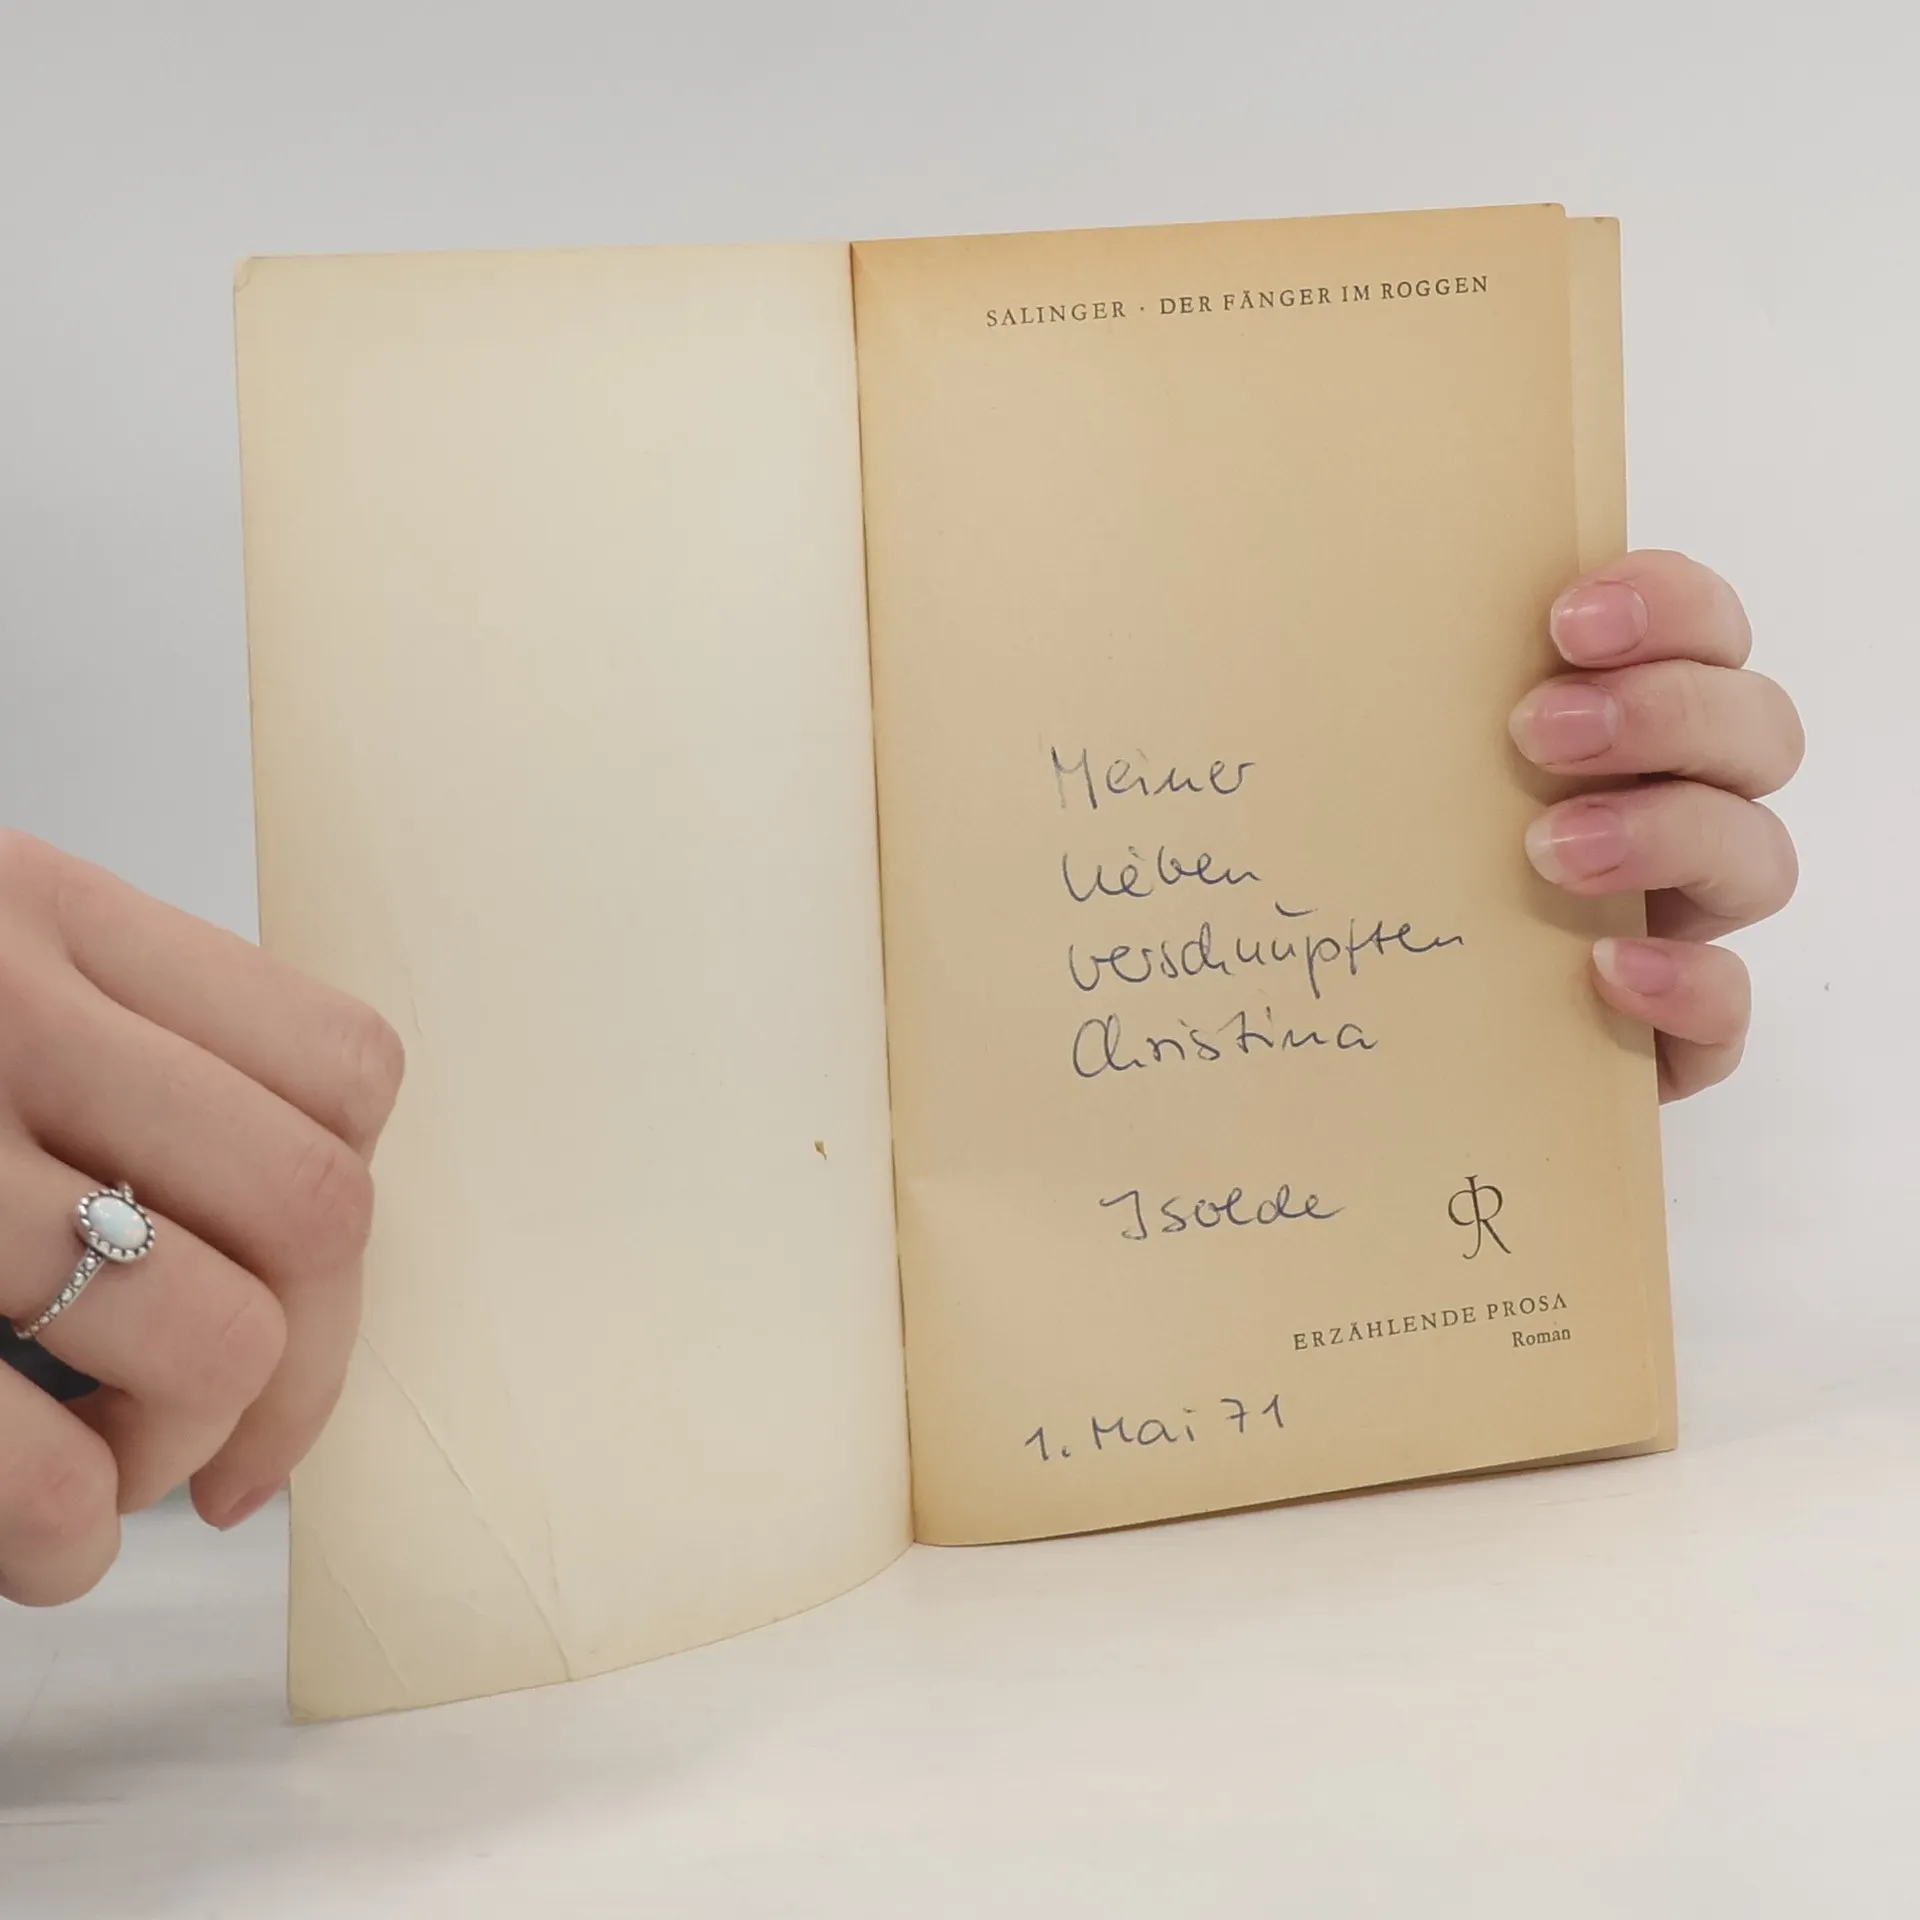 SALINGER · DER FÄNGER IM ROGGEN
Meiner
lieben
verschnupften
Christina
Isolde
ERZÄHLENDE PROSA
Roman
1. Mai 71